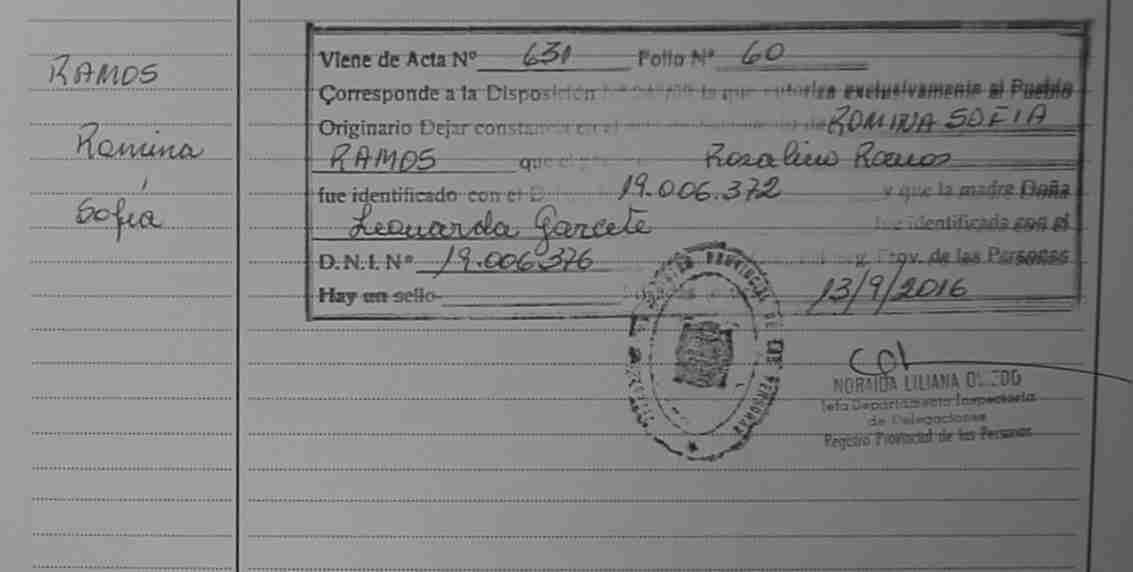 RAMOS
Romina
Sofia
Viene de Acta Nº 631 Folio Nº 60
Corresponde a la Disposición la que autoriza exclusivamente al Pueblo
Originario Dejar constancia en el de ROMINA SOFIA
RAMOS que el Rosalino Ramos
fue identificado con el 19.006.372 y que la madre Doña
Leonarda Garcete fue identificada con el
D.N.I. Nº 19.006376 Prov. de las Personas
Hay un sello 13/9/2016
PROVINCIAL DE LAS PERSONAS
NORAIDA LILIANA
Jefa Departamento Inspectoría
de Delegaciones
Registro Provincial de las Personas